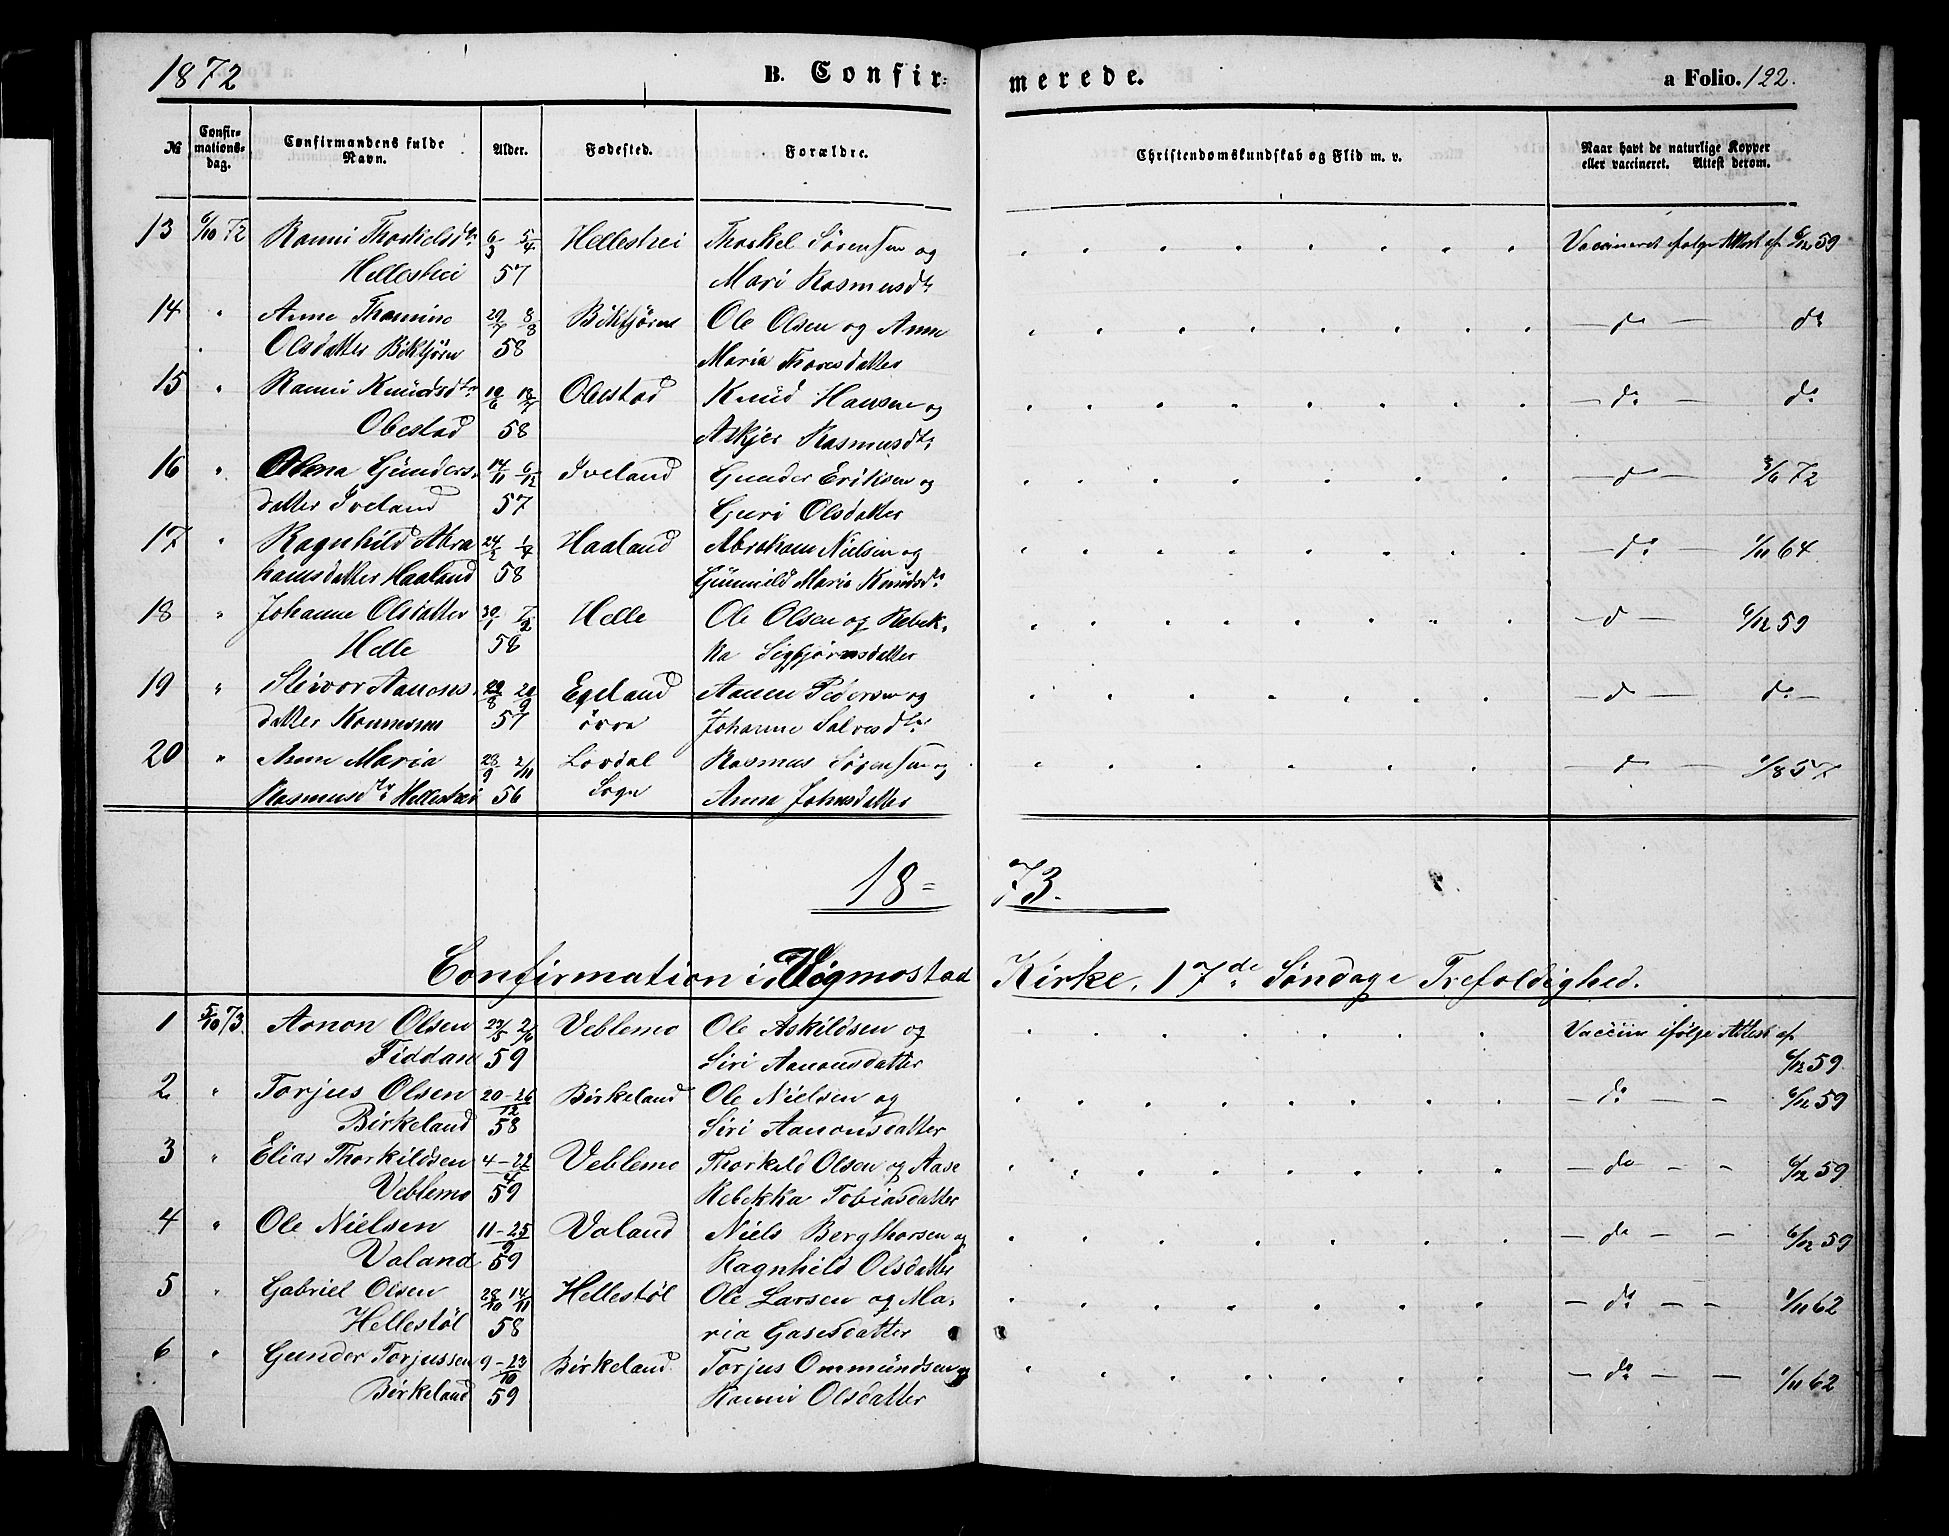 1872 B. Confirmerede. a Folio. 122.
№ Confirmationsdag. Confirmandens fulde Navn. Alder. Fødested. Forældre. Christendomskundskab og Flid m. v. Naar havt de naturlige Kopper eller vaccineret. Attest derom.
13 6/10 72 Ranni Thorkelsdtr 6/3 5/4 Hellestvei Thorkel Sørensen og Vaccineret ifølge Attest af 6/12 59
Hellestvei 57 Mari Rasmusdtr
14 " Anne Thomine 29/7 8/8 Birktjørn Ole Olsen og Anne — do — do
Olsdatter Birktjørn 58 Maria Thoresdatter
15 " Ranni Knudsdtr 19/6 18/7 Obestad Knud Hansen og — do — do
Obestad 58 Askjer Rasmusdtr
16 " Olena Gunders- 14/11 6/12 Iveland Gunder Eriksen og — do — 3/6 72
datter Iveland 57 Guri Olsdatter
17 " Ragnhild Abra 24/2 1/4 Haaland Abraham Nielsen og — do — 1/11 64
hamsdatter Haaland 58 Gunnild Maria Knudsdtr
18 " Johanne Olsdatter 30/1 7/2 Helle Ole Olsen og Rebek- — do — 6/12 59
Helle 58 ka Sigbjørnsdatter
19 " Aanons- 20/8 20/9 Egeland Aanen Pedersen og — do — do —
datter 57 øvre Johanne Salvesdtr
20 " Anne Maria 28/9 2/11 Lovdal Rasmus Sørensen og — do — 1/8 57
Rasmusdtr Hellestvei 56 Sogn Anna Johnsdatter
18=73.
Confirmation i Vigmostad Kirke, 17de Søndag e Trefoldighed.
1 5/10 73. Aonon Olsen 22/5 2/6 Veblemo Ole Askildsen og Vaccin ifølge Attest af
Fiddan 59 Siri Aanonsdatter 6/12 59
2 " Torjus Olsen 20-26/12 Birkeland Ole Nielsen og — do — - 6/12 59
Birkeland 58 Siri Aanonsdatter
3 " Elias Thorkildsen 4-22/4 Veblemo Thorkild Olsen og Aase — do — - 6/12 59
Veblemo 59 Rebekka Tobiasdatter
4 " Ole Nielsen 11-25/9 Valand Niels Bergthorsen og — do — - 6/12 59
Valand 59 Ragnhild Olsdatter
5 " Gabriel Olsen 28/10 14/11 Hellestøl Ole Larsen og Ma- — do — - 1/11 62
Hellestøl 58 ria Gasesdatter
6 " Gunder Torjussen 9-23/10 Birkeland Torjus Ommundsen og — do — - 1/11 62
Birkeland 59 Ranni Olsdatter